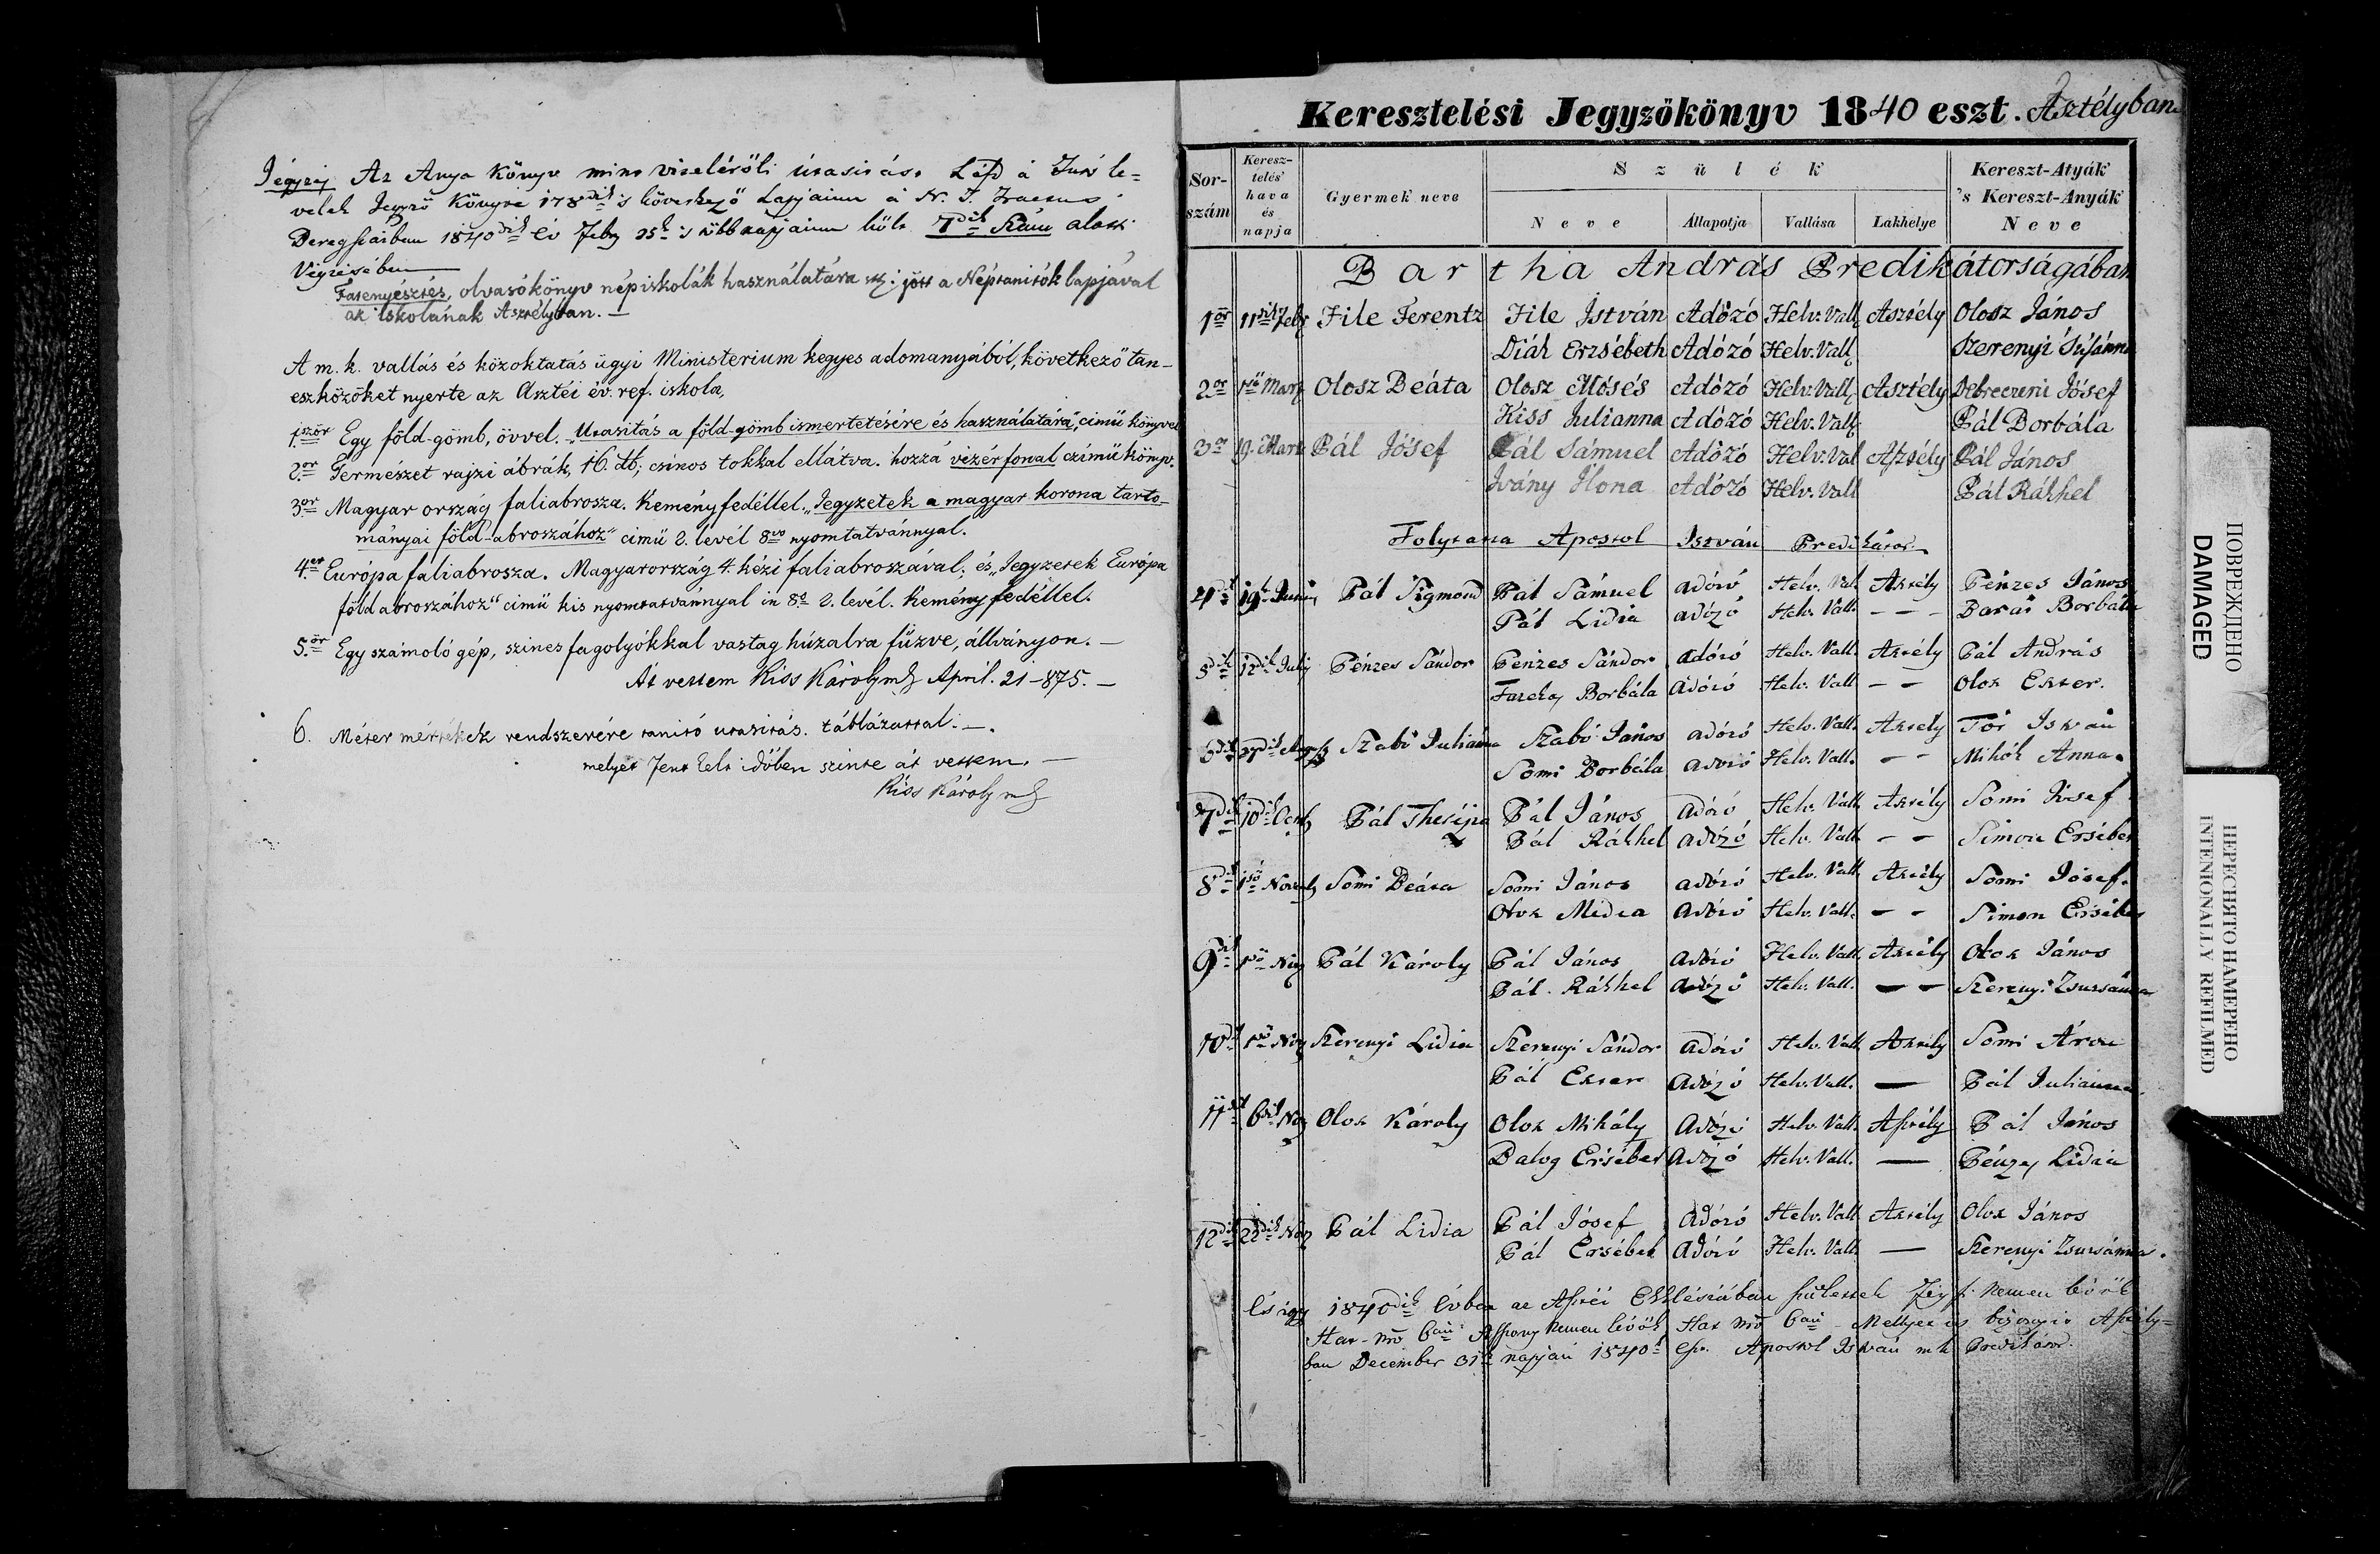 Jegyzés Az Anya Könyv mint viseléröli útasitás. Lásd a Jurs le=
velek Jegyző Könyve 178dik 's következő Lapjainn a N. T. Tractus
Beregszászban 1840dik év Feb. 25k 's több napjainn költ 7dik Szám alatti
Végzésében
Fatenyésztés, olvasókönyv népiskolák használatára jött a Néptanitók lapjával
az iskolának Asztélyban. —
A m. k. vallás és közoktatás ügyi Ministerium kegyes adományából, következő tan-
eszközöket nyerte az Asztéi év. ref. iskola,
1ször Egy föld-gömb, övvel. „Utasitás a föld-gömb ismertetésére és használatára", cimű könyvel
2.or Természet rajzi ábrák, 16. db; csinos tokkal ellátva. hozzá vezérfonal czimű könyv.
3.or Magyar ország faliabrosza. Kemény fedéllel. „Jegyzetek a magyar korona tarto-
mányai föld-abroszához" cimű 2. levél 8vo nyomtatvánnyal.
4.er Európa faliabrosza. Magyarország 4. kézi faliabroszával; és „Jegyzetek Európa
föld abroszához" cimű kis nyomtatvánnyal in 8o 2. levél. Kemény fedéllel.
5.ör Egy számoló gép, szines fagolyókkal vastag húzalra fűzve, állványon. —
Át vettem Kiss Károly mk April. 21 – 875. —
6. Méter mértékek rendszerére tanitó utasitás. táblázattal. —.
melyet Jent Eelt időben szinte át vettem. —
Kiss Károly mk
Keresztelési Jegyzőkönyv 1840 eszt. Asztélyban
Sor-szám
Keresz-telés' hava és napja
Gyermek neve
Szülék
Neve
Állapotja
Vallása
Lakhelye
Kereszt-Atyák 's Kereszt-Anyák Neve
Bartha András Predikátorságában
1ör 11dik Feb File Ferentz File István Adózó Helv. Vall Asztély Olosz János
Diák Erzsébeth Adózó Helv. Vall Szerenyi Susánna
2or 1ső Mart Olosz Beáta Olosz Mósés Adózó Helv. Vall Asztély Debreczeni Jósef
Kiss Julianna Adózó Helv. Vall Pál Borbála
3or 19. Mart Pál Jósef Pál Sámuel Adózó Helv. Val Asztély Pál János
Ivány Ilona Adózó Helv. Vall Pál Rákhel
Folytatta Apostol István Predikátor
4dik 19k Juni Pál Sigmond Pál Sámuel adózó Helv. Val. Asztély Pénzes János
Pál Lidia adózó Helv. Vall. – – – Barai Borbála
5dik 12dik Julij Pénzes Sándor Pénzes Sándor adózó Helv. Vall. Asztély Pál András
Fazekas Borbála adózó Helv. Vall – – Olosz Eszter.
6dik 27dik Aug Szabó Julianna Szabó János adózó Helv. Vall. Asztély Tót István
Somi Borbála adózó Helv. Vall. – – Mihók Anna.
7dik 10dik Octb Pál Therézia Pál János adózó Helv. Vall Asztély Somi Jósef
Pál Rákhel adózó Helv. Vall – – Simon Ersébet
8dik 1ső Novemb Somi Beáta Somi János adózó Helv. Vall Asztély Somi Jósef.
Olosz Media adózó Helv. Vall. – – Simon Ersébet
9dik 1ső Nov Pál Károly Pál János adózó Helv. Vall. Asztély Olosz János
Pál Rákhel adózó Helv. Vall. – – Szerenyi Zsuzsánna
10dik 1ső Nov Szerenyi Lidia Szerenyi Sándor adózó Helv. Vall Asztély Somi Áron
Pál Eszter adózó Helv. Vall. — Pál Julianna
11dik 6dik Nov Olosz Károly Olosz Mihály adózó Helv. Vall. Asztély Pál János
Balog Ersébet adózó Helv. Vall. — Pénzes Lidia
12dik 22dik Nov Pál Lidia Pál Jósef adózó Helv. Vall Asztély Olosz János
Pál Ersébet adózó Helv. Vall. — Szerenyi Zsuzsánna.
És igy 1840dik évben az Asztéi Ekklésiában születtek Férfi Nemen lévők
Hat – nro 6an Asszony Nemen lévők Hat nro 6an – Mellyet is bizonyit Asztély=
ban December 31k napján 1840k Esz. Apostol István mk Predikátor.
ПОВРЕЖДЕНО
DAMAGED
ПЕРЕСНЯТО НАМЕРЕНО
INTENIONALLY REFILMED